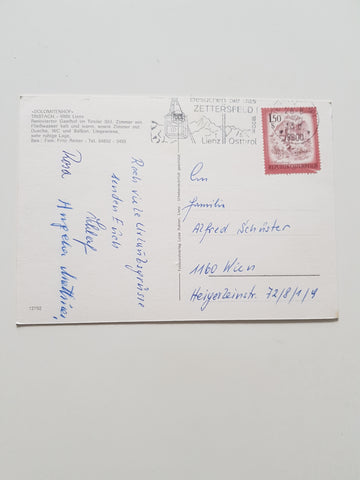 «DOLOMITENHOF»
TRISTACH - 9900 Lienz
Renovierter Gasthof im Tiroler Stil. Zimmer mit
Fließwasser kalt und warm, sowie Zimmer mit
Dusche, WC und Balkon. Liegewiese,
sehr ruhige Lage.
Bes.: Fam. Fritz Tel. 04852 - 3455
Recht viele Urlaubsgrüsse
senden Euch
Rosa Angelia
12752
Besuchen Sie das
ZETTERSFELD
Lienz Osttirol
1.50
REPUBLIK ÖSTERREICH
An
Familie
Alfred Schuster
1160 Wien
72/8/1/9